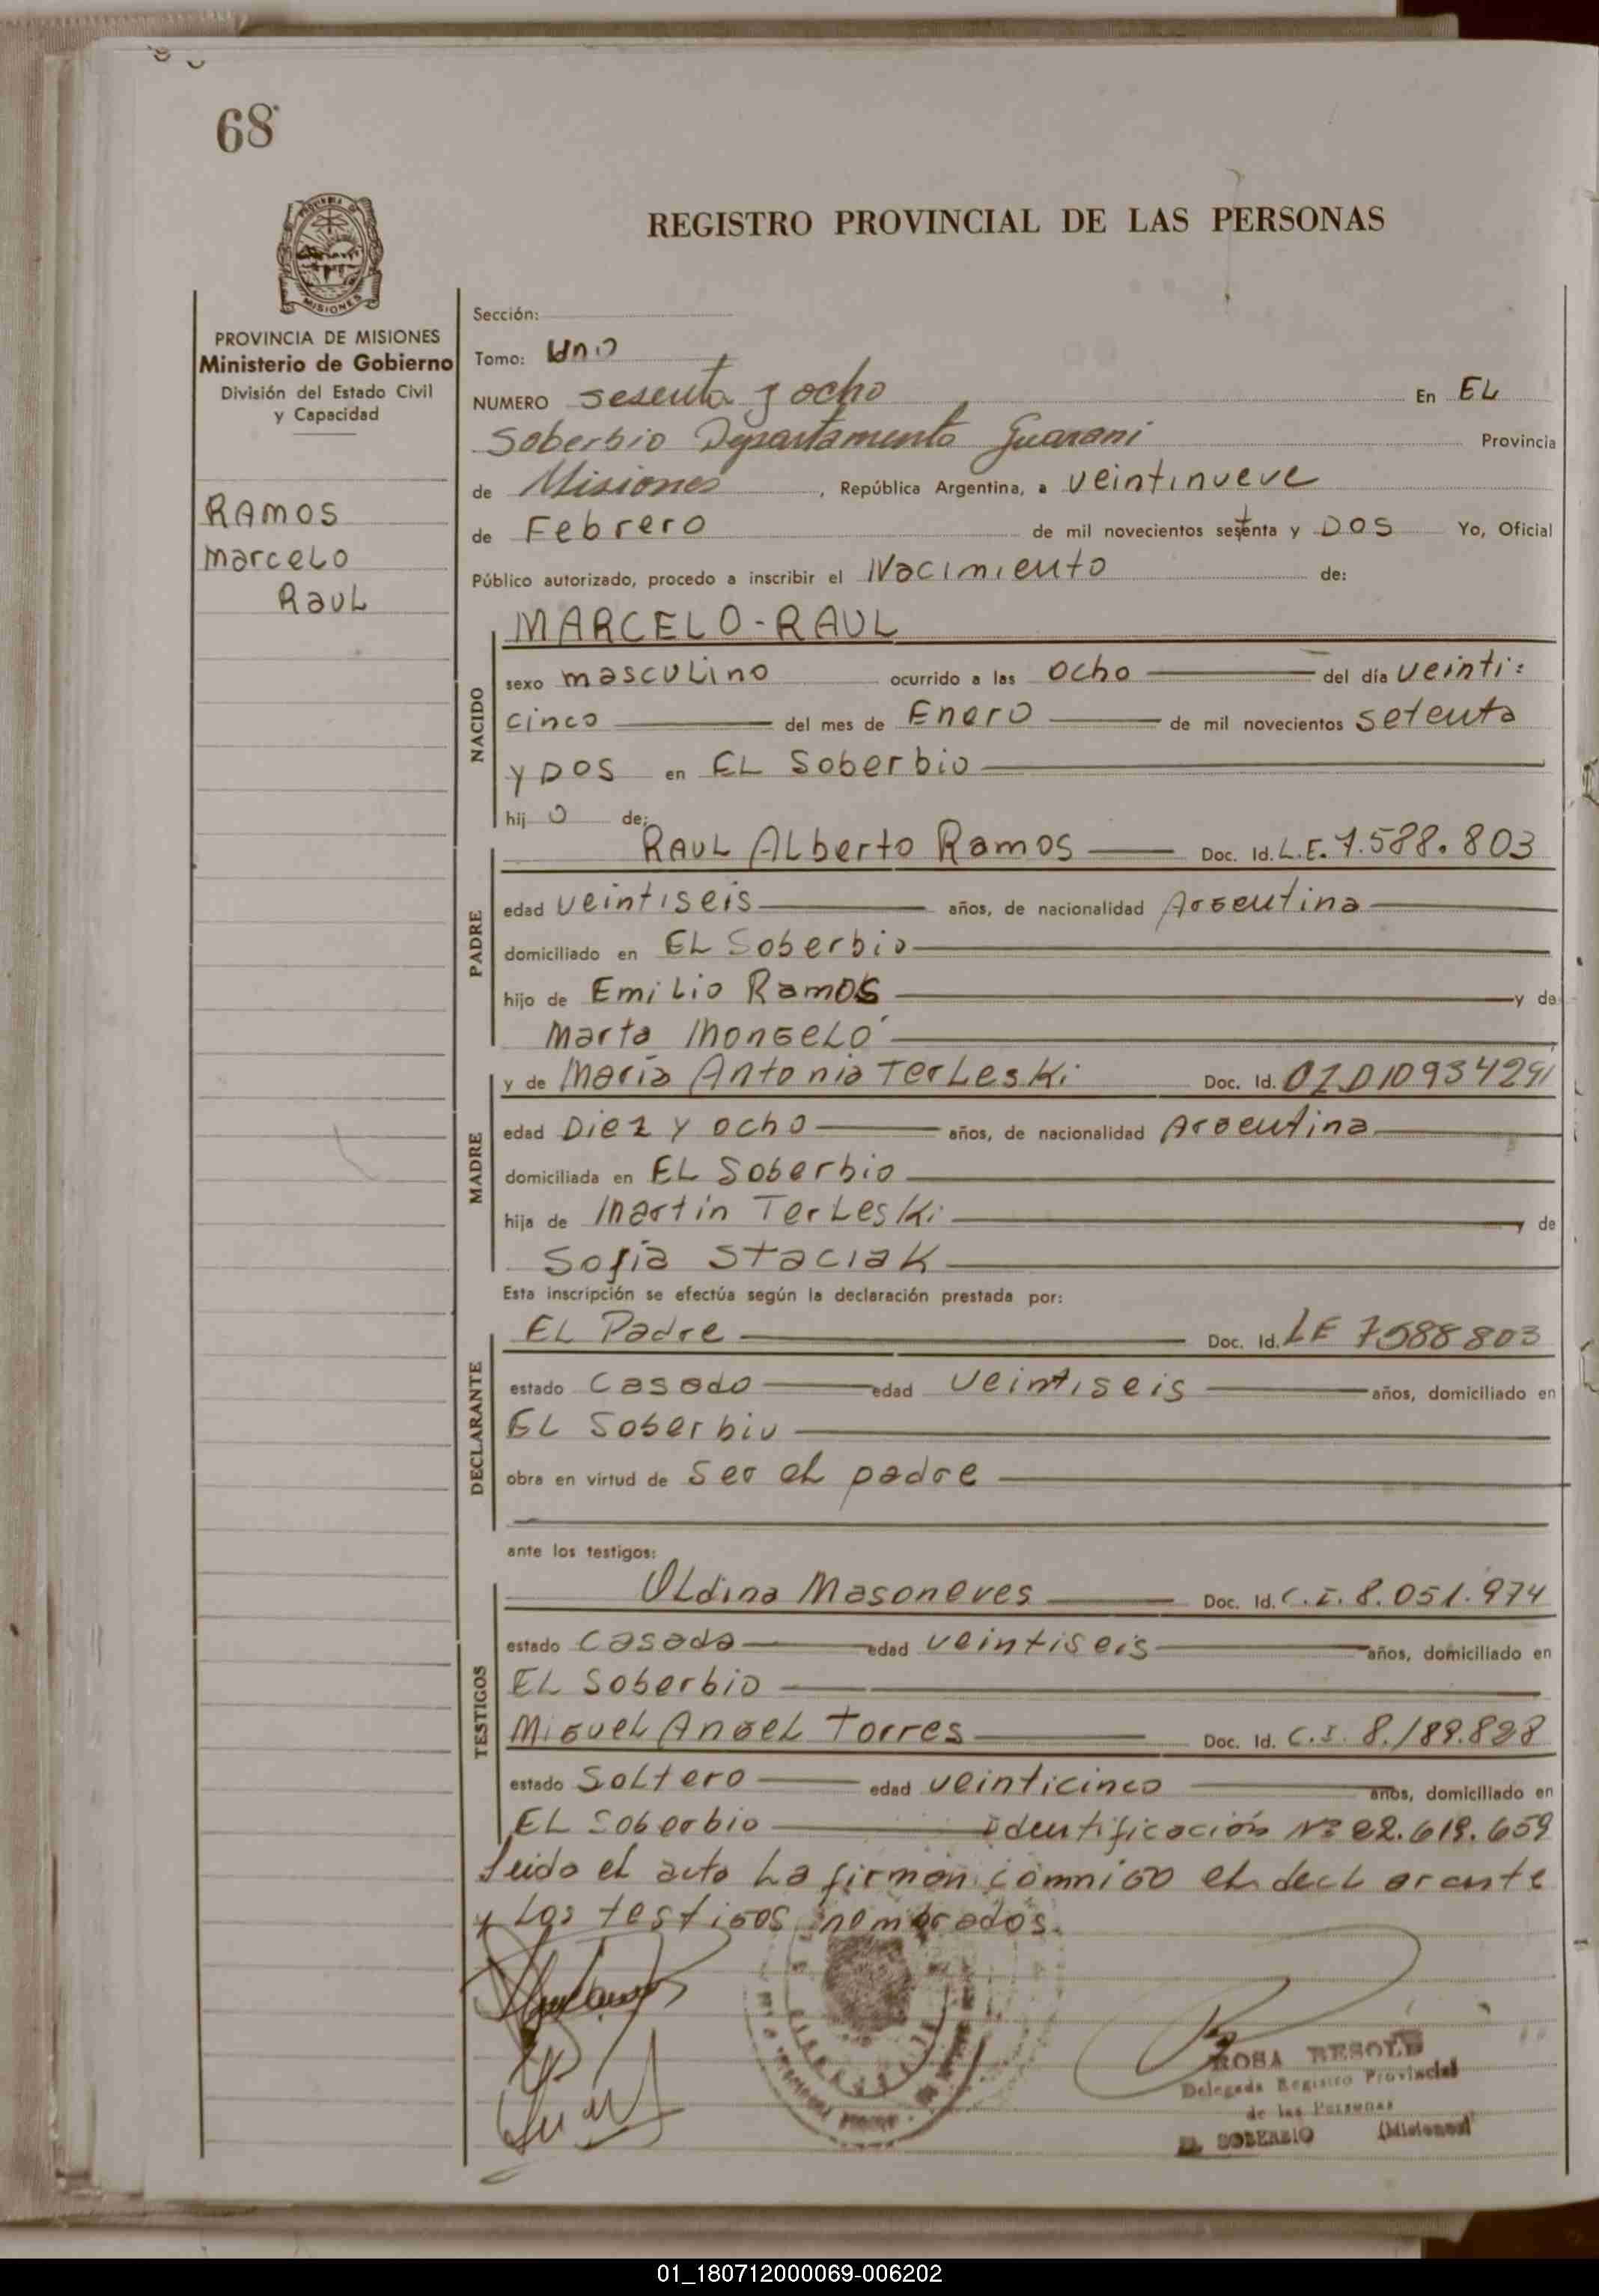 68
REGISTRO PROVINCIAL DE LAS PERSONAS
MISIONES
PROVINCIA DE MISIONES
Ministerio de Gobierno
División del Estado Civil
y Capacidad
RAMOS
Marcelo
Raul
Sección:
Tomo: Uno
NUMERO sesenta y ocho En EL
Soberbio Departamento Guarani Provincia
de Misiones, República Argentina, a veintinueve
de Febrero de mil novecientos setenta y DOS Yo, Oficial
Público autorizado, procedo a inscribir el Nacimiento de:
NACIDO
MARCELO-RAUL
sexo masculino ocurrido a las ocho del día veinti:
cinco del mes de Enero de mil novecientos setenta
y DOS en EL Soberbio
hij o de:
PADRE
RAUL ALberto Ramos Doc. Id. L.E. 7.588.803
edad veintiseis años, de nacionalidad Argentina
domiciliado en EL Soberbio
hijo de Emilio Ramos y de
Marta Mongeló
MADRE
y de María Antonia TerLeski Doc. Id.
edad Diez y ocho años, de nacionalidad Argentina
domiciliada en EL Soberbio
hija de Martin TerLeski y de
Sofia Staciak
Esta inscripción se efectúa según la declaración prestada por:
DECLARANTE
EL Padre Doc. Id. LE 7588803
estado Casado edad veintiseis años, domiciliado en
EL Soberbio
obra en virtud de ser el padre
ante los testigos:
TESTIGOS
Oldina Masoneves Doc. Id. C.I. 8.051.974
estado Casada edad veintiseis años, domiciliado en
EL Soberbio
Miguel Angel Torres Doc. Id. C.I. 8.189.828
estado Soltero edad veinticinco años, domiciliado en
EL Soberbio Identificación Nº 22.619.659
Leido el acto La firman comnigo el declarante
y Los testigos nombrados.
ROSA BESOLD
Delegada Registro Provincial
de las Personas
EL SOBERBIO (Misiones)
01_180712000069-006202